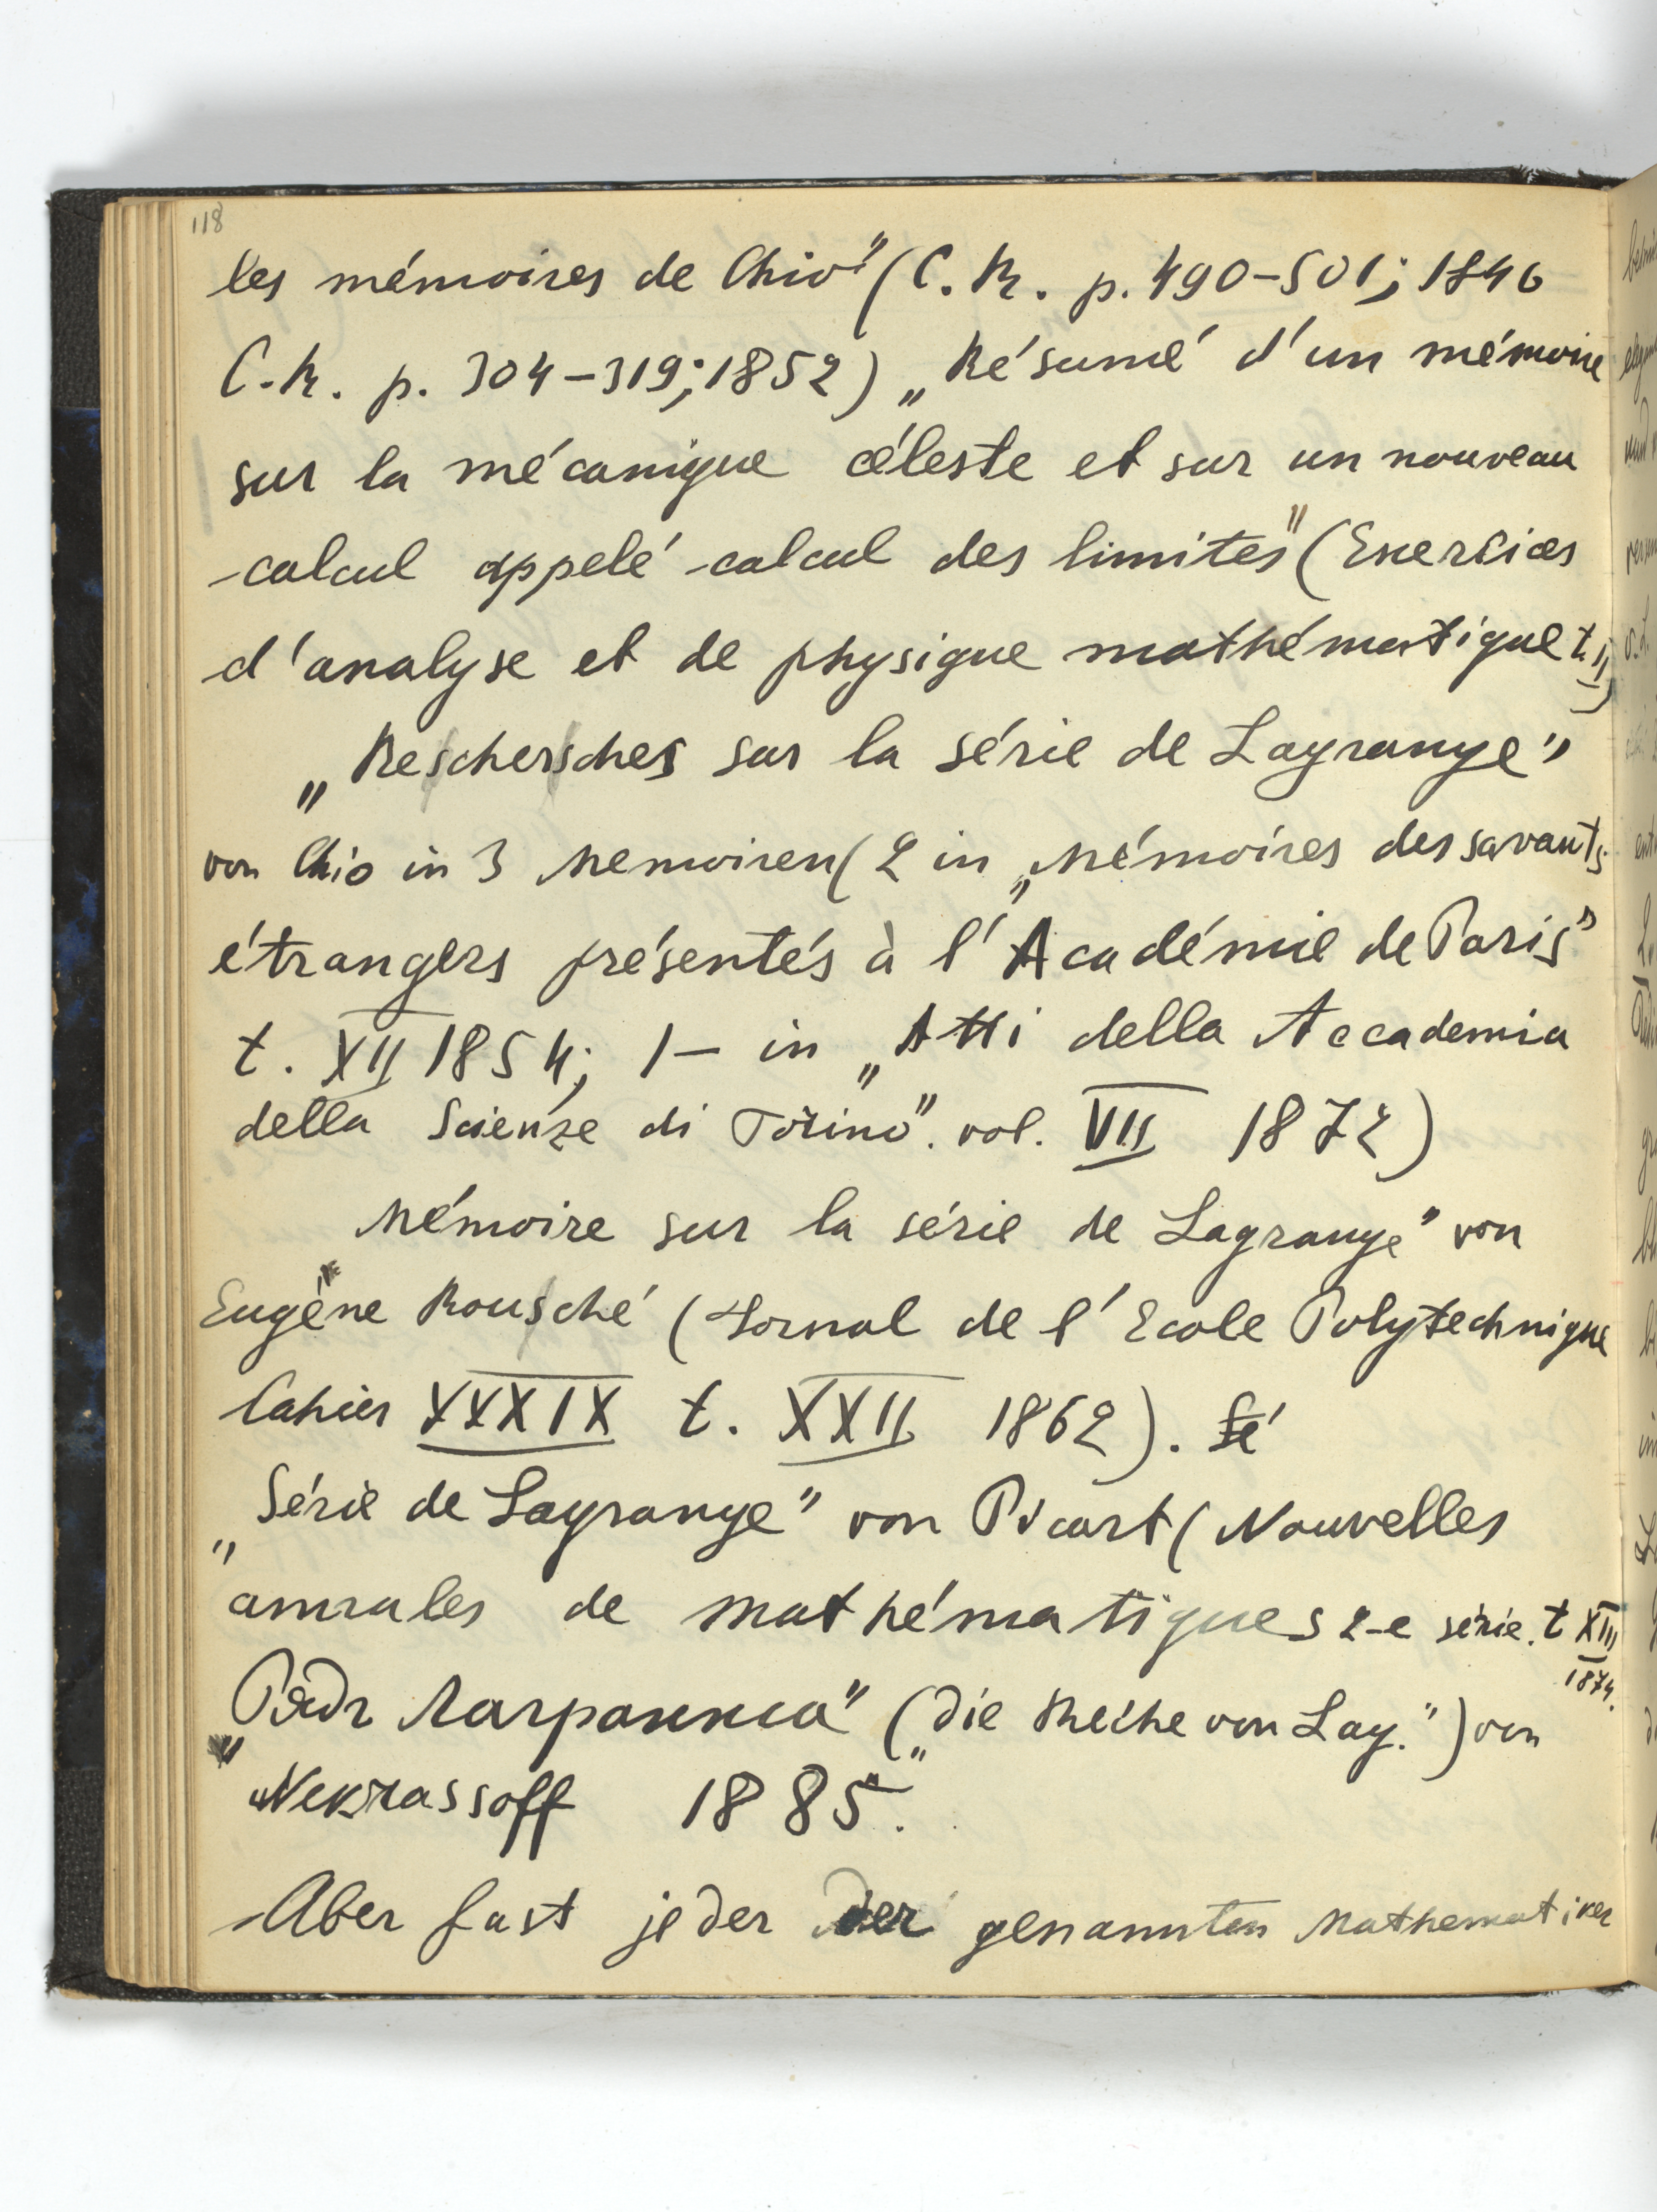 118
les mémoires de Chio" (C. R. p. 490–501; 1846
C. R. p. 304–319; 1852) „Résumé d'un mémoire
sur la mécanique céleste et sur un nouveau
calcul appelé calcul des limites" (Exercices
d'analyse et de physique mathématique t. II)
„Reschersches sur la série de Lagrange"
von Chio in 3 Memoiren (2 in „Mémoires des savants
étrangers présentés à l'Académie de Paris"
t. XII 1854; 1– in „Atti della Accademia
della Scienze di Torino". vol. VII 1872)
„Mémoire sur la série de Lagrange" von
Eugène Rousché (Jornal de l'Ecole Polytechnique
Cahier XXXIX t. XXII 1862). Sé
„Série de Lagrange" von Picart (Nouvelles
annales de mathématiques 2-e série. t XIII
1874.
„Рядъ Лагранжа" („Die Reihe von Lag.") von
Nekrassoff 1885.
Aber fast jeder der genannten Mathematiker